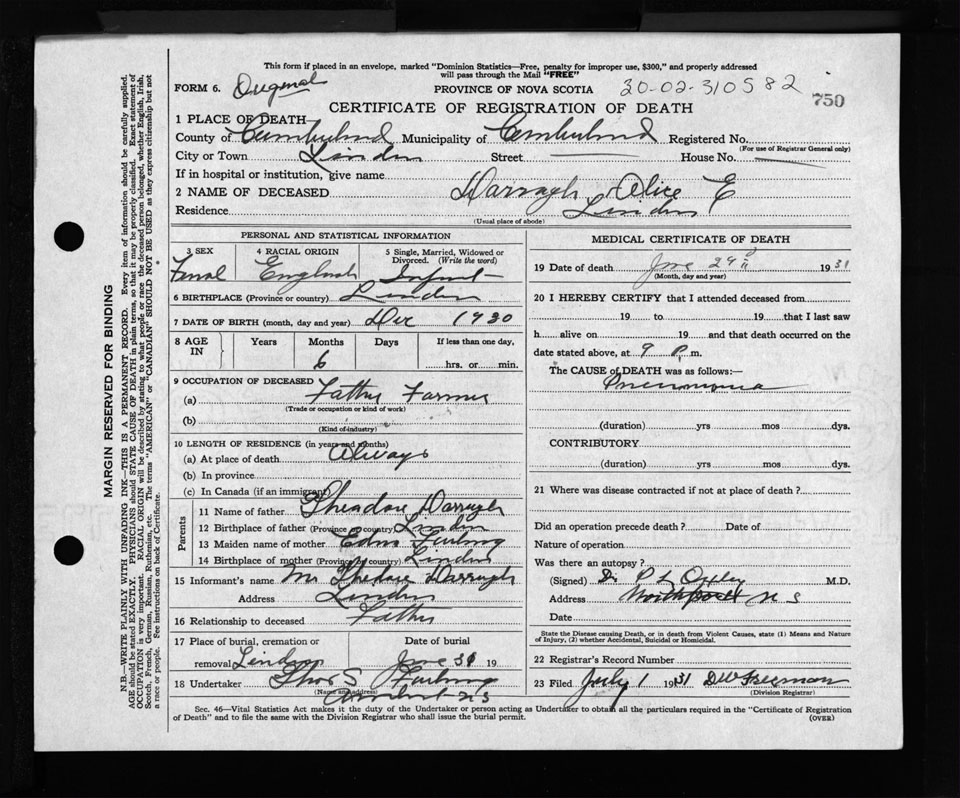 This form if placed in an envelope, marked "Dominion Statistics—Free, penalty for improper use, $300," and properly addressed
will pass through the Mail "FREE"
FORM 6. PROVINCE OF NOVA SCOTIA 20-02-310582
750
CERTIFICATE OF REGISTRATION OF DEATH
1 PLACE OF DEATH
County of Cumberland Municipality of Cumberland Registered No.
(For use of Registrar General only)
City or Town Linden Street House No.
If in hospital or institution, give name
2 NAME OF DECEASED Darragh Alice E
Residence Linden
(Usual place of abode)
PERSONAL AND STATISTICAL INFORMATION
3 SEX 4 RACIAL ORIGIN 5 Single, Married, Widowed or
Divorced. (Write the word)
Femal English Infant
6 BIRTHPLACE (Province or country) Linden
7 DATE OF BIRTH (month, day and year) Dec 1930
8 AGE IN Years Months Days If less than one day,
6 hrs. or min.
9 OCCUPATION OF DECEASED
(a) Father Farmer
(Trade or occupation or kind of work)
(b)
(Kind of industry)
10 LENGTH OF RESIDENCE (in years and months)
(a) At place of death Always
(b) In province
(c) In Canada (if an immigrant)
Parents
11 Name of father Theadore Darragh
12 Birthplace of father (Province or country) Linden
13 Maiden name of mother Edna Furlong
14 Birthplace of mother (Province or country) Linden
15 Informant's name Mr Thedore Darragh
Address Linden
16 Relationship to deceased Father
17 Place of burial, cremation or Date of burial
removal Linden June 31 19
18 Undertaker Thos S Furlong
(Name and address)
Amherst N S
MEDICAL CERTIFICATE OF DEATH
19 Date of death June 29 1931
(Month, day and year)
20 I HEREBY CERTIFY that I attended deceased from
19 to 19 that I last saw
h alive on 19 and that death occurred on the
date stated above, at 9 P. m.
The CAUSE of DEATH was as follows:
Pneumonia
(duration) yrs mos dys.
CONTRIBUTORY
(duration) yrs. mos dys.
21 Where was disease contracted if not at place of death?
Did an operation precede death? Date of
Nature of operation
Was there an autopsy?
(Signed) Dr P L Oxley M.D.
Address Northport N S
Date
State the Disease causing Death, or in death from Violent Causes, state (1) Means and Nature
of Injury, (2) whether Accidental, Suicidal or Homicidal.
22 Registrar's Record Number
23 Filed July 1 1931 D W Freeman
(Division Registrar)
Sec. 46—Vital Statistics Act makes it the duty of the Undertaker or person acting as Undertaker to obtain all the particulars required in the "Certificate of Registration
of Death" and to file the same with the Division Registrar who shall issue the burial permit. (OVER)
MARGIN RESERVED FOR BINDING
N.B.—WRITE PLAINLY WITH UNFADING INK—THIS IS A PERMANENT RECORD. Every item of information should be carefully supplied.
AGE should be stated EXACTLY. PHYSICIANS should STATE CAUSE OF DEATH in plain terms, so that it may be properly classified. Exact statement of
OCCUPATION is very important. RACIAL ORIGIN will be described by stating to what people or race the deceased person belonged, whether English, Irish,
Scotch, French, German, Russian, Ruthenian, etc. The terms "AMERICAN" or "CANADIAN" SHOULD NOT BE USED as they express citizenship but not
a race or people. See instructions on back of Certificate.